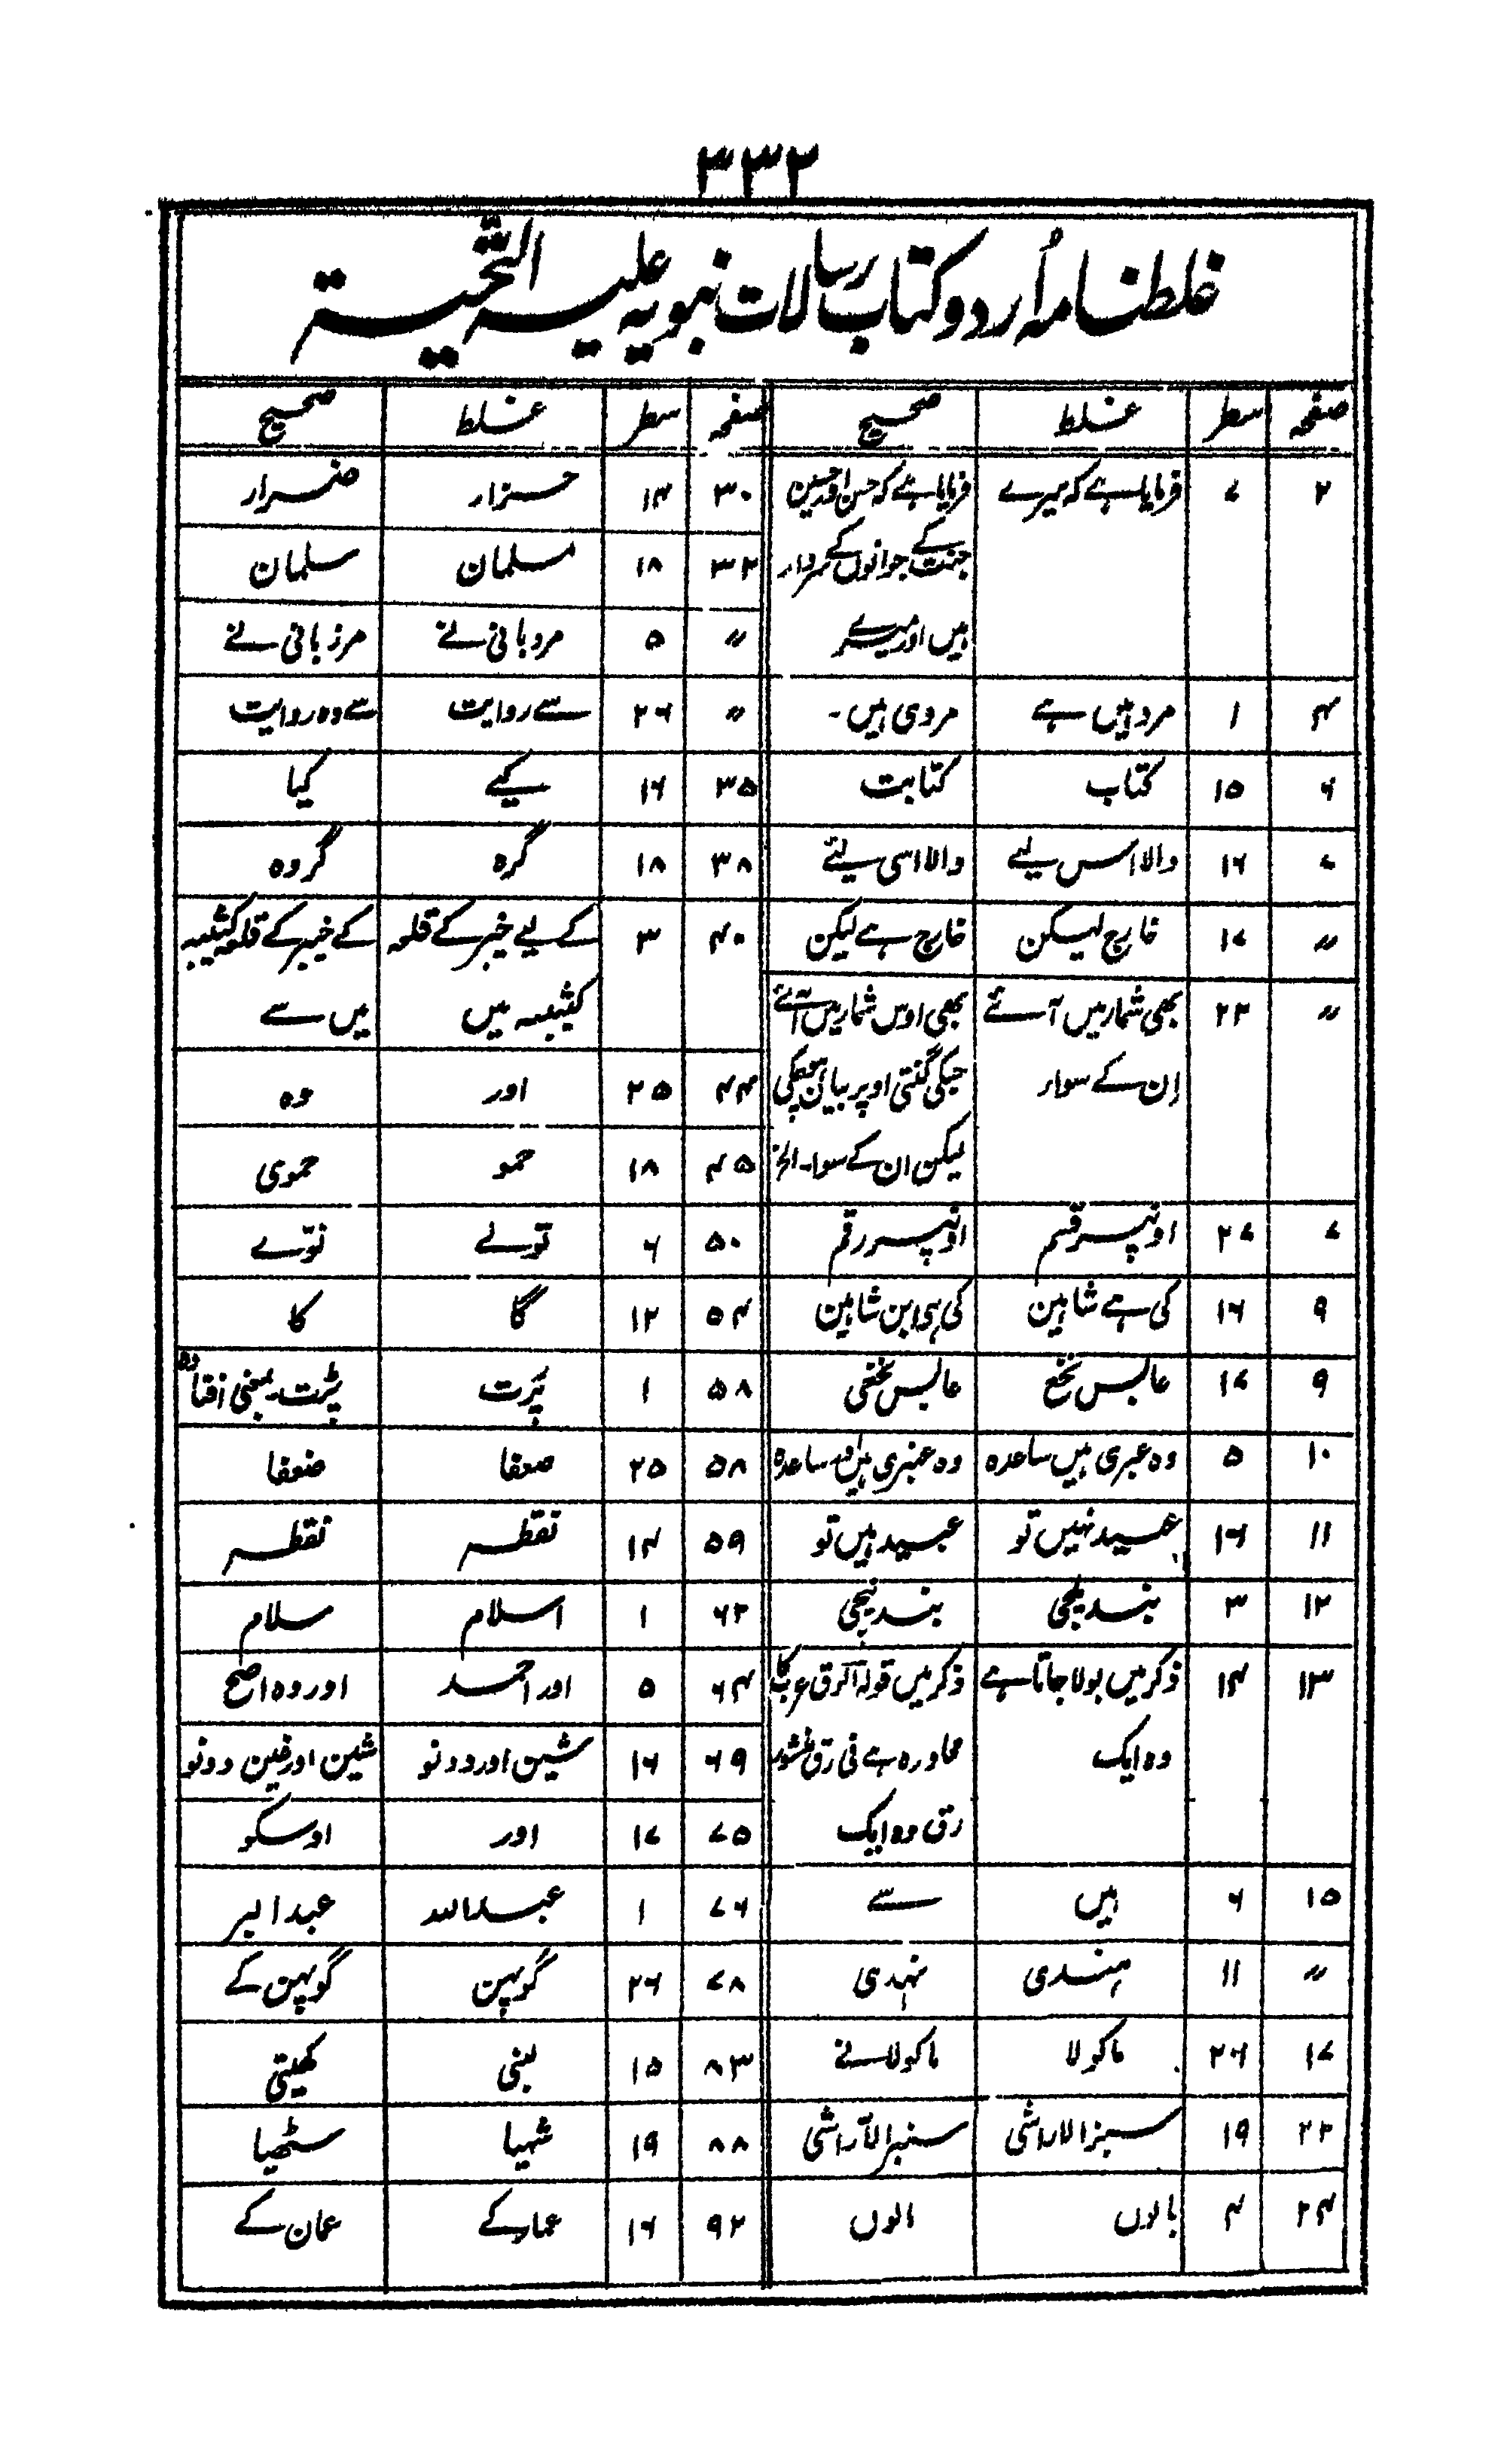 ۳۳۲
غلطنامہ اُردو کتاب رسالات نبویہ علیہ التحیۃ
صفحہ سطر غلط صحیح صفحہ سطر غلط صحیح
۲ ۷ فرمایا ہے کہ میرے فرمایا ہے کہ حسن اور حسین
جنت کے جوانوں کے سردار
ہیں اور میرے
۴ ۱ مرد ہیں ہے مردی ہیں۔
۶ ۱۵ کتاب کتابت
۷ ۱۶ والا اس لیے والا اسی لیے
〃 ۱۷ خارج لیکن خارج ہے لیکن
〃 ۲۳ بھی شمار میں آئے بھی اوس شمار میں آئے
اِن کے سواء جنکی گنتی اوپر بیان ہوچکی
لیکن ان کے سواء الخ
۷ ۲۷ اونپر قسم اونپر رقم
۹ ۱۶ کی ہے شاہین کی ہی ابن شاہین
۹ ۱۷ عابس نخع عابس نخعی
۱۰ ۵ وہ عبری ہیں ساعدہ وہ عنبری ہیں وہ ساعدہ
۱۱ ۱۶ عبید نہیں تو عبید ہیں تو
۱۲ ۳ بندیجی بندنیجی
۱۳ ۱۴ ذکر میں بولا جاتا ہے ذکر میں قولہ اکرق عرب کا
وہ ایک محاورہ ہے فی رق منشور
رق وہ ایک
۱۵ ۶ ہیں سے
〃 ۱۱ ہندی نہدی
۱۷ ۲۶ ماکولا ماکولا نے
۲۲ ۱۹ سبزالاراشی سنبرالآراشی
۲۴ ۴ بالوں الوں
۳۰ ۱۴ حزار ضرار
۳۲ ۱۸ مسلمان سلمان
〃 ۵ مردبانی نے مرزبانی نے
〃 ۲۶ سے روایت سے وہ روایت
۳۵ ۱۶ کیے کیا
۳۸ ۱۸ گرہ گروہ
۴۰ ۳ کے لیے خیبر کے قلعہ کے خیبر کے قلعہ کثیبہ
کثیبہ میں میں سے
۴۴ ۲۵ اور وہ
۴۵ ۱۸ حمو حموی
۵۰ ۶ تولے نوّے
۵۴ ۱۲ گا کا
۵۸ ۱ پَرت پڑت بمعنی افتادہ
۵۸ ۲۵ صعفا ضعفا
۵۹ ۱۴ نقطہ نقطہ
۶۲ ۱ اسلام سلام
۶۴ ۵ اور احمد اور وہ اصح
۶۹ ۱۶ شین اور دونو شین اور غین دونو
۷۵ ۱۷ اور اوسکو
۷۶ ۱ عبداللہ عبدالبر
۷۸ ۲۶ گوپہن گوپہن کے
۸۳ ۱۵ لبنی کھیتی
۸۸ ۱۹ شہیا سٹھیا
۹۲ ۱۶ عمارکے عمان کے